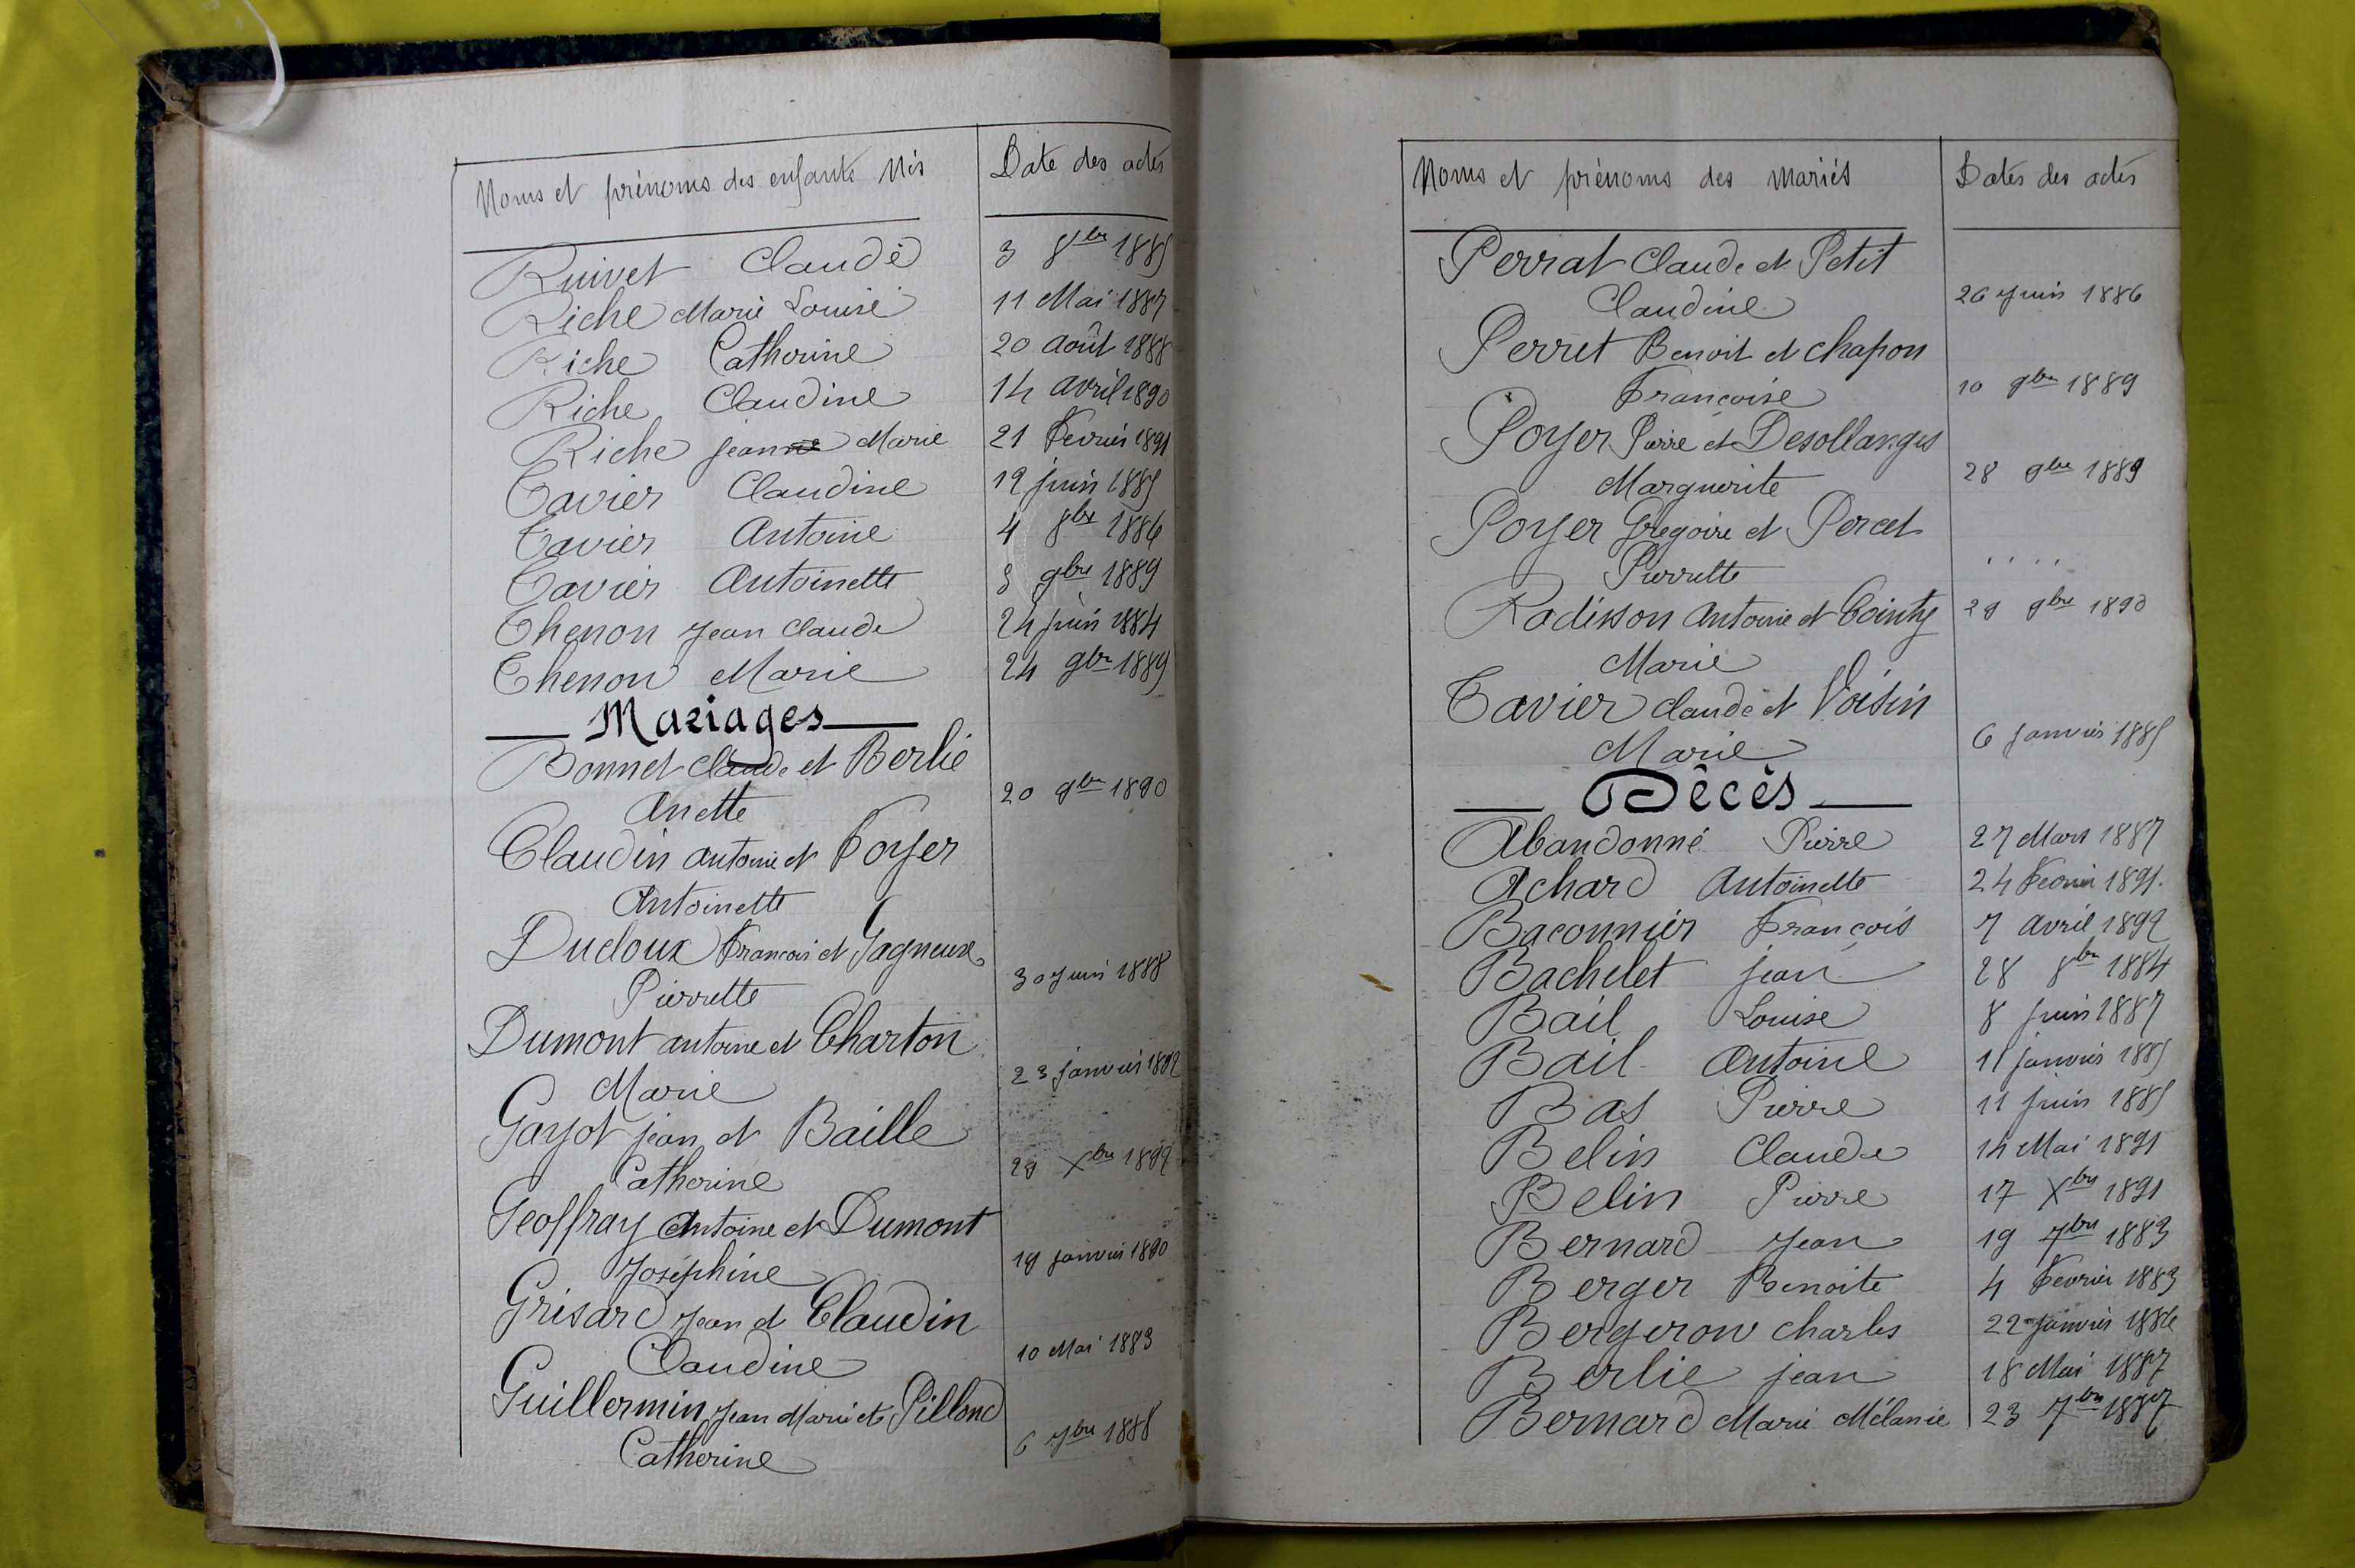 Noms et prénoms des enfants Nés
Date des actes
Ruivet Claude 3 8bre 1885
Riche Marie Louise 11 Mai 1887
Riche Catherine 20 août 1888
Riche Claudine 14 avril 1890
Riche Jeanne Marie 21 Fevrier 1891
Tavier Claudine 19 juin 1885
Tavier Antoine 4 8bre 1886
Tavier Antoinette 3 9bre 1889
Thenon Jean Claude 24 juin 1884
Thenon Marie 24 9bre 1889
Mariages
Bonnet Claude et Berlie
Anette 20 9bre 1890
Claudin antoine et Foyer
Antoinette
Ducloux Francois et Gagneux
Pierrette 30 Juin 1888
Dumont antoine et Charton
Marie 23 janvier 1892
Gayot jean et Baille
Catherine 29 Xbre 1892
Geoffray Antoine et Dumont
Joséphine 19 janvier 1890
Grisard Jean et Claudin
Claudine 10 Mai 1883
Guillermin Jean Marie et Pillond
Catherine 6 7bre 1888
Noms et prénoms des Mariés
Dates des actes
Perrat Claude et Petit
Claudine 26 Juin 1886
Perret Benoit et Chapon
Françoise 10 9bre 1889
Poyer Pierre et Desollanges
Marguerite 28 9bre 1889
Poyer Gregoire et Percet
Pierrette . . . .
Radisson Antoine et Cointy 29 9bre 1890
Marie
Tavier Claude et Voisin
Marie 6 Janvier 1885
Décès
Abandonné Pierre 27 Mars 1887
Achard Antoinette 24 Fevrier 1891.
Baconnier François 7 avril 1892
Bachelet jean 28 8bre 1884
Bail Louise 8 juin 1887
Bail Antoine 11 janvier 1885
Bas Pierre 11 juin 1885
Belin Claude 14 Mai 1891
Belin Pierre 17 Xbre 1891
Bernard Jean 19 7bre 1883
Berger Benoite 4 Fevrier 1883
Bergeron Charles 22 Janvier 1886
Berlie jean 18 Mai 1887
Bernard Marie Mélanie 23 7bre 1887